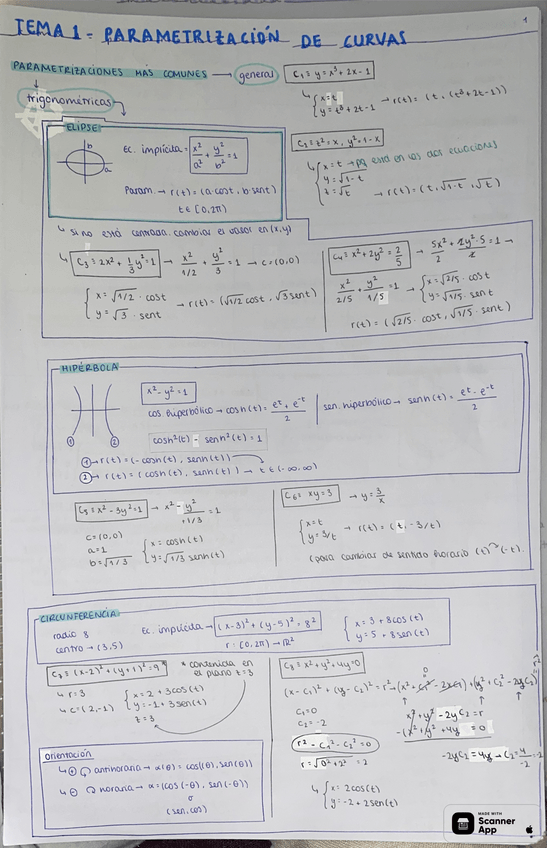 1
TEMA 1 - PARAMETRIZACIÓN DE CURVAS
PARAMETRIZACIONES MÁS COMUNES → general
C₁ ≡ y = x³ + 2x - 1
↳ {x = t
y = t³ + 2t - 1 → r(t) = (t, (t³ + 2t - 1))
trigonométricas
C₂ ≡ z² = x, y² = 1 - x
↳ {x = t → pq está en las dos ecuaciones
y = √1-t
z = √t → r(t) = (t, √1-t, √t)
ELIPSE
b
a
Ec. implícita: x²/a² + y²/b² = 1
Param. → r(t) = (a·cost, b·sent)
t ∈ [0, 2π)
↳ si no está centrada cambiar el valor en (x,y)
↳ C₃ ≡ 2x² + 1/3 y² = 1 → x²/1/2 + y²/3 = 1 → c = (0,0)
{x = √1/2 · cost
y = √3 · sent → r(t) = (√1/2 cost, √3 sent)
C₄ ≡ x² + 2y² = 2/5 → 5x²/2 + 2y²·5/2 = 1 →
x²/2/5 + y²/1/5 = 1 → {x = √2/5 · cost
y = √1/5 · sent
r(t) = (√2/5 · cost, √1/5 · sent)
HIPÉRBOLA
x² - y² = 1
cos. hiperbólico → cosh(t) = eᵗ + e⁻ᵗ/2 | sen. hiperbólico → senh(t) = eᵗ - e⁻ᵗ/2
cosh²(t) - senh²(t) = 1
① ②
① → r(t) = (-cosh(t), senh(t))
② → r(t) = (cosh(t), senh(t)) → t ∈ (-∞, ∞)
C₅ ≡ x² - 3y² = 1 → x² - y²/+1/3 = 1
c = (0,0)
a = 1
b = √1/3
{x = cosh(t)
y = √1/3 senh(t)
C₆ ≡ xy = 3 → y = 3/x
{x = t
y = 3/t → r(t) = (t, -3/t)
(para cambiar de sentido horario (t) → (-t).
CIRCUNFERENCIA
radio 8
centro → (3,5)
Ec. implícita → (x-3)² + (y-5)² = 8²
r: [0, 2π) → ℝ²
{x = 3 + 8cos(t)
y = 5 + 8sen(t)
C₇ ≡ (x-2)² + (y+1)² = 9*
* contenida en el plano z = 3
↳ r = 3
↳ c = (2, -1)
{x = 2 + 3cos(t)
y = -1 + 3sen(t)
z = 3
C₈ ≡ x² + y² + 4y = 0
(x - C₁)² + (y - C₂)² = r² → (x² + C₁² - 2xC₁) + (y² + C₂² - 2yC₂) = r²
0
C₁ = 0
C₂ = -2
x² + y² - 2yC₂ = r
-(x² + y² + 4y = 0)
r² - C₁² - C₂² = 0
r = √0² + 2² = 2
-2yC₂ = 4y → C₂ = 4/-2 = -2
↳ {x = 2cos(t)
y = -2 + 2sen(t)
orientación
↳ ⊕ antihoraria → α(θ) = (cos(θ), sen(θ))
↳ ⊖ horaria → α = (cos(-θ), sen(-θ))
o
(sen, cos)
MADE WITH
Scanner
App